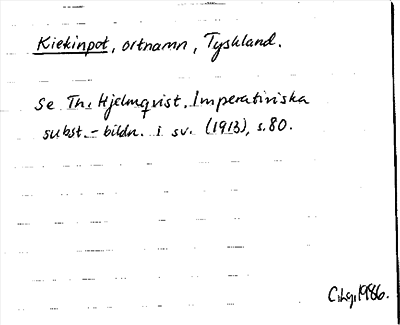 Kiekinpot, ortnamn, Tyskland.
Se Th. Hjelmqvist. Imperativiska
subst.-bildn. i sv. (1913), s.80.
C.Lg. 1986.